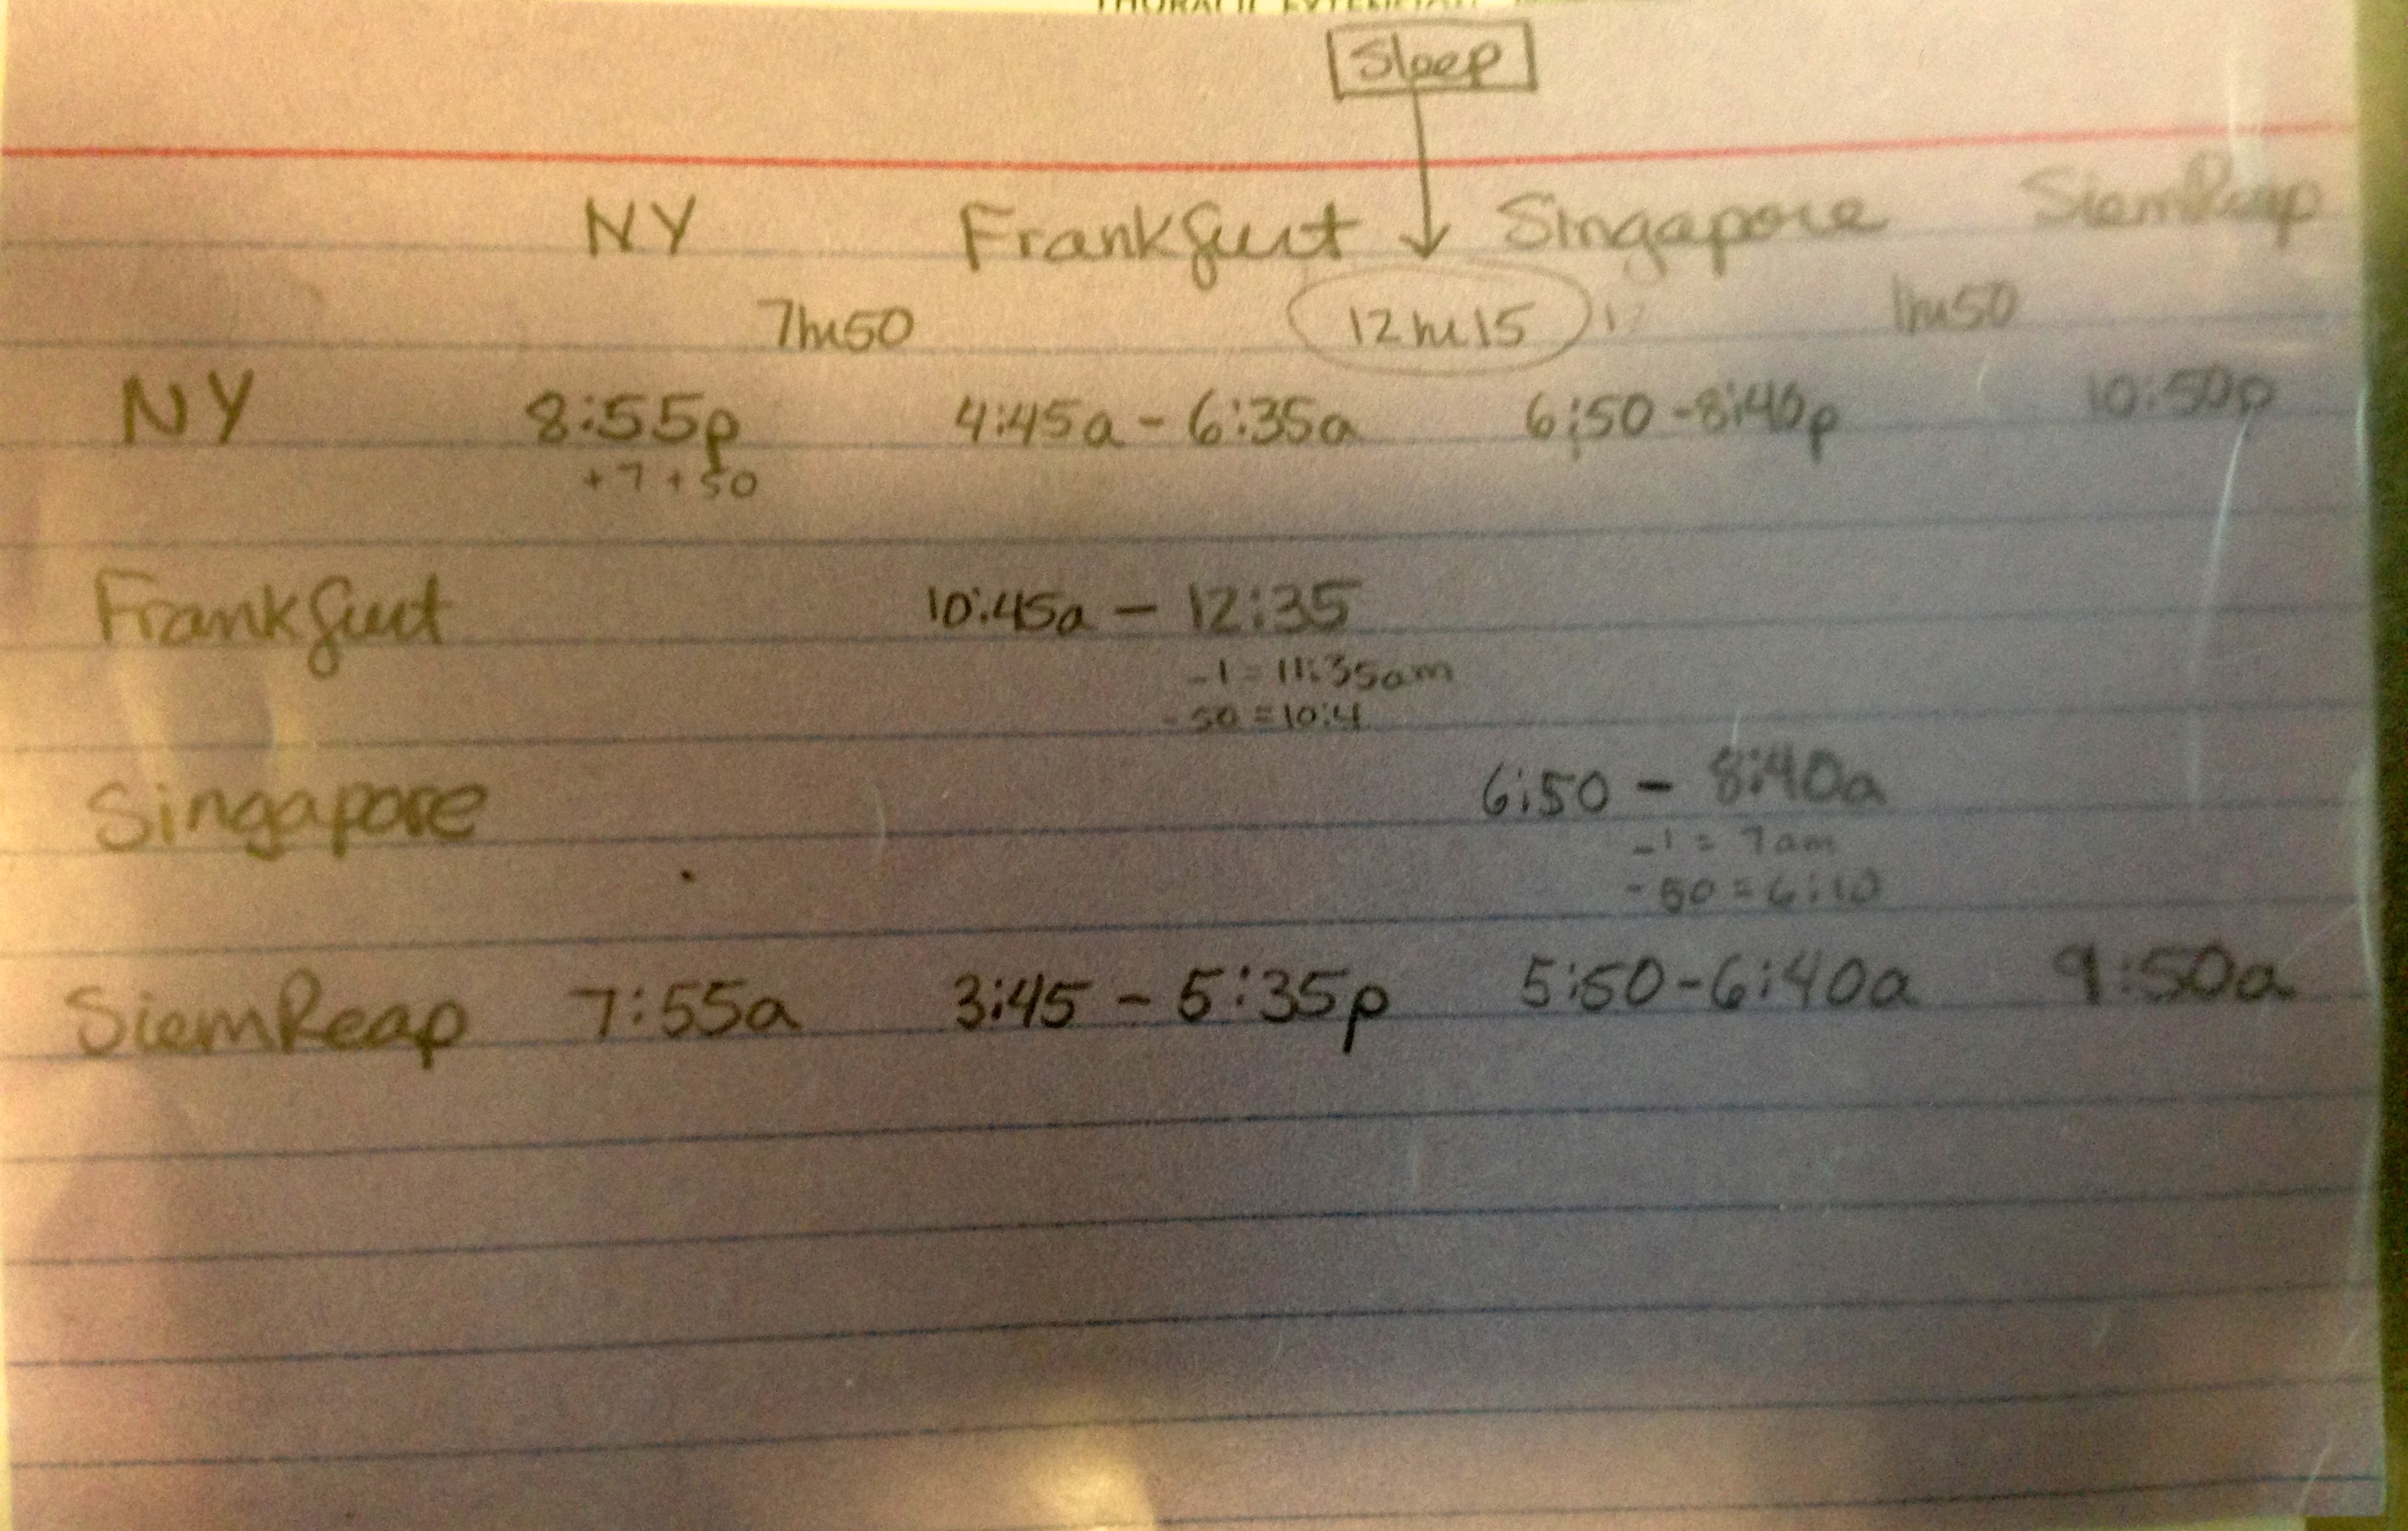 Sleep
NY Frankfurt Singapore SiemReap
7hr50 12hr15 1hr50
NY 8:55p 4:45a - 6:35a 6:50 - 8:40p 10:50p
+7 +50
Frankfurt 10:45a - 12:35
-1 = 11:35am
-50 = 10:4
Singapore 6:50 - 8:40a
-1 = 7am
-50 = 6:10
SiemReap 7:55a 3:45 - 5:35p 5:50-6:40a 9:50a